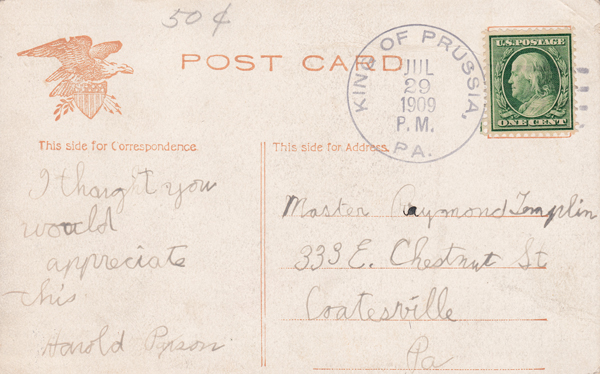 50¢
POST CARD
KING OF PRUSSIA,
JUL
29
1909
P. M.
PA.
U.S. POSTAGE
ONE CENT
This side for Correspondence.
This side for Address.
I thought you
would
appreciate
this.
Harold Pierson
Master Raymond Templin
333 E. Chestnut St
Coatesville
Pa